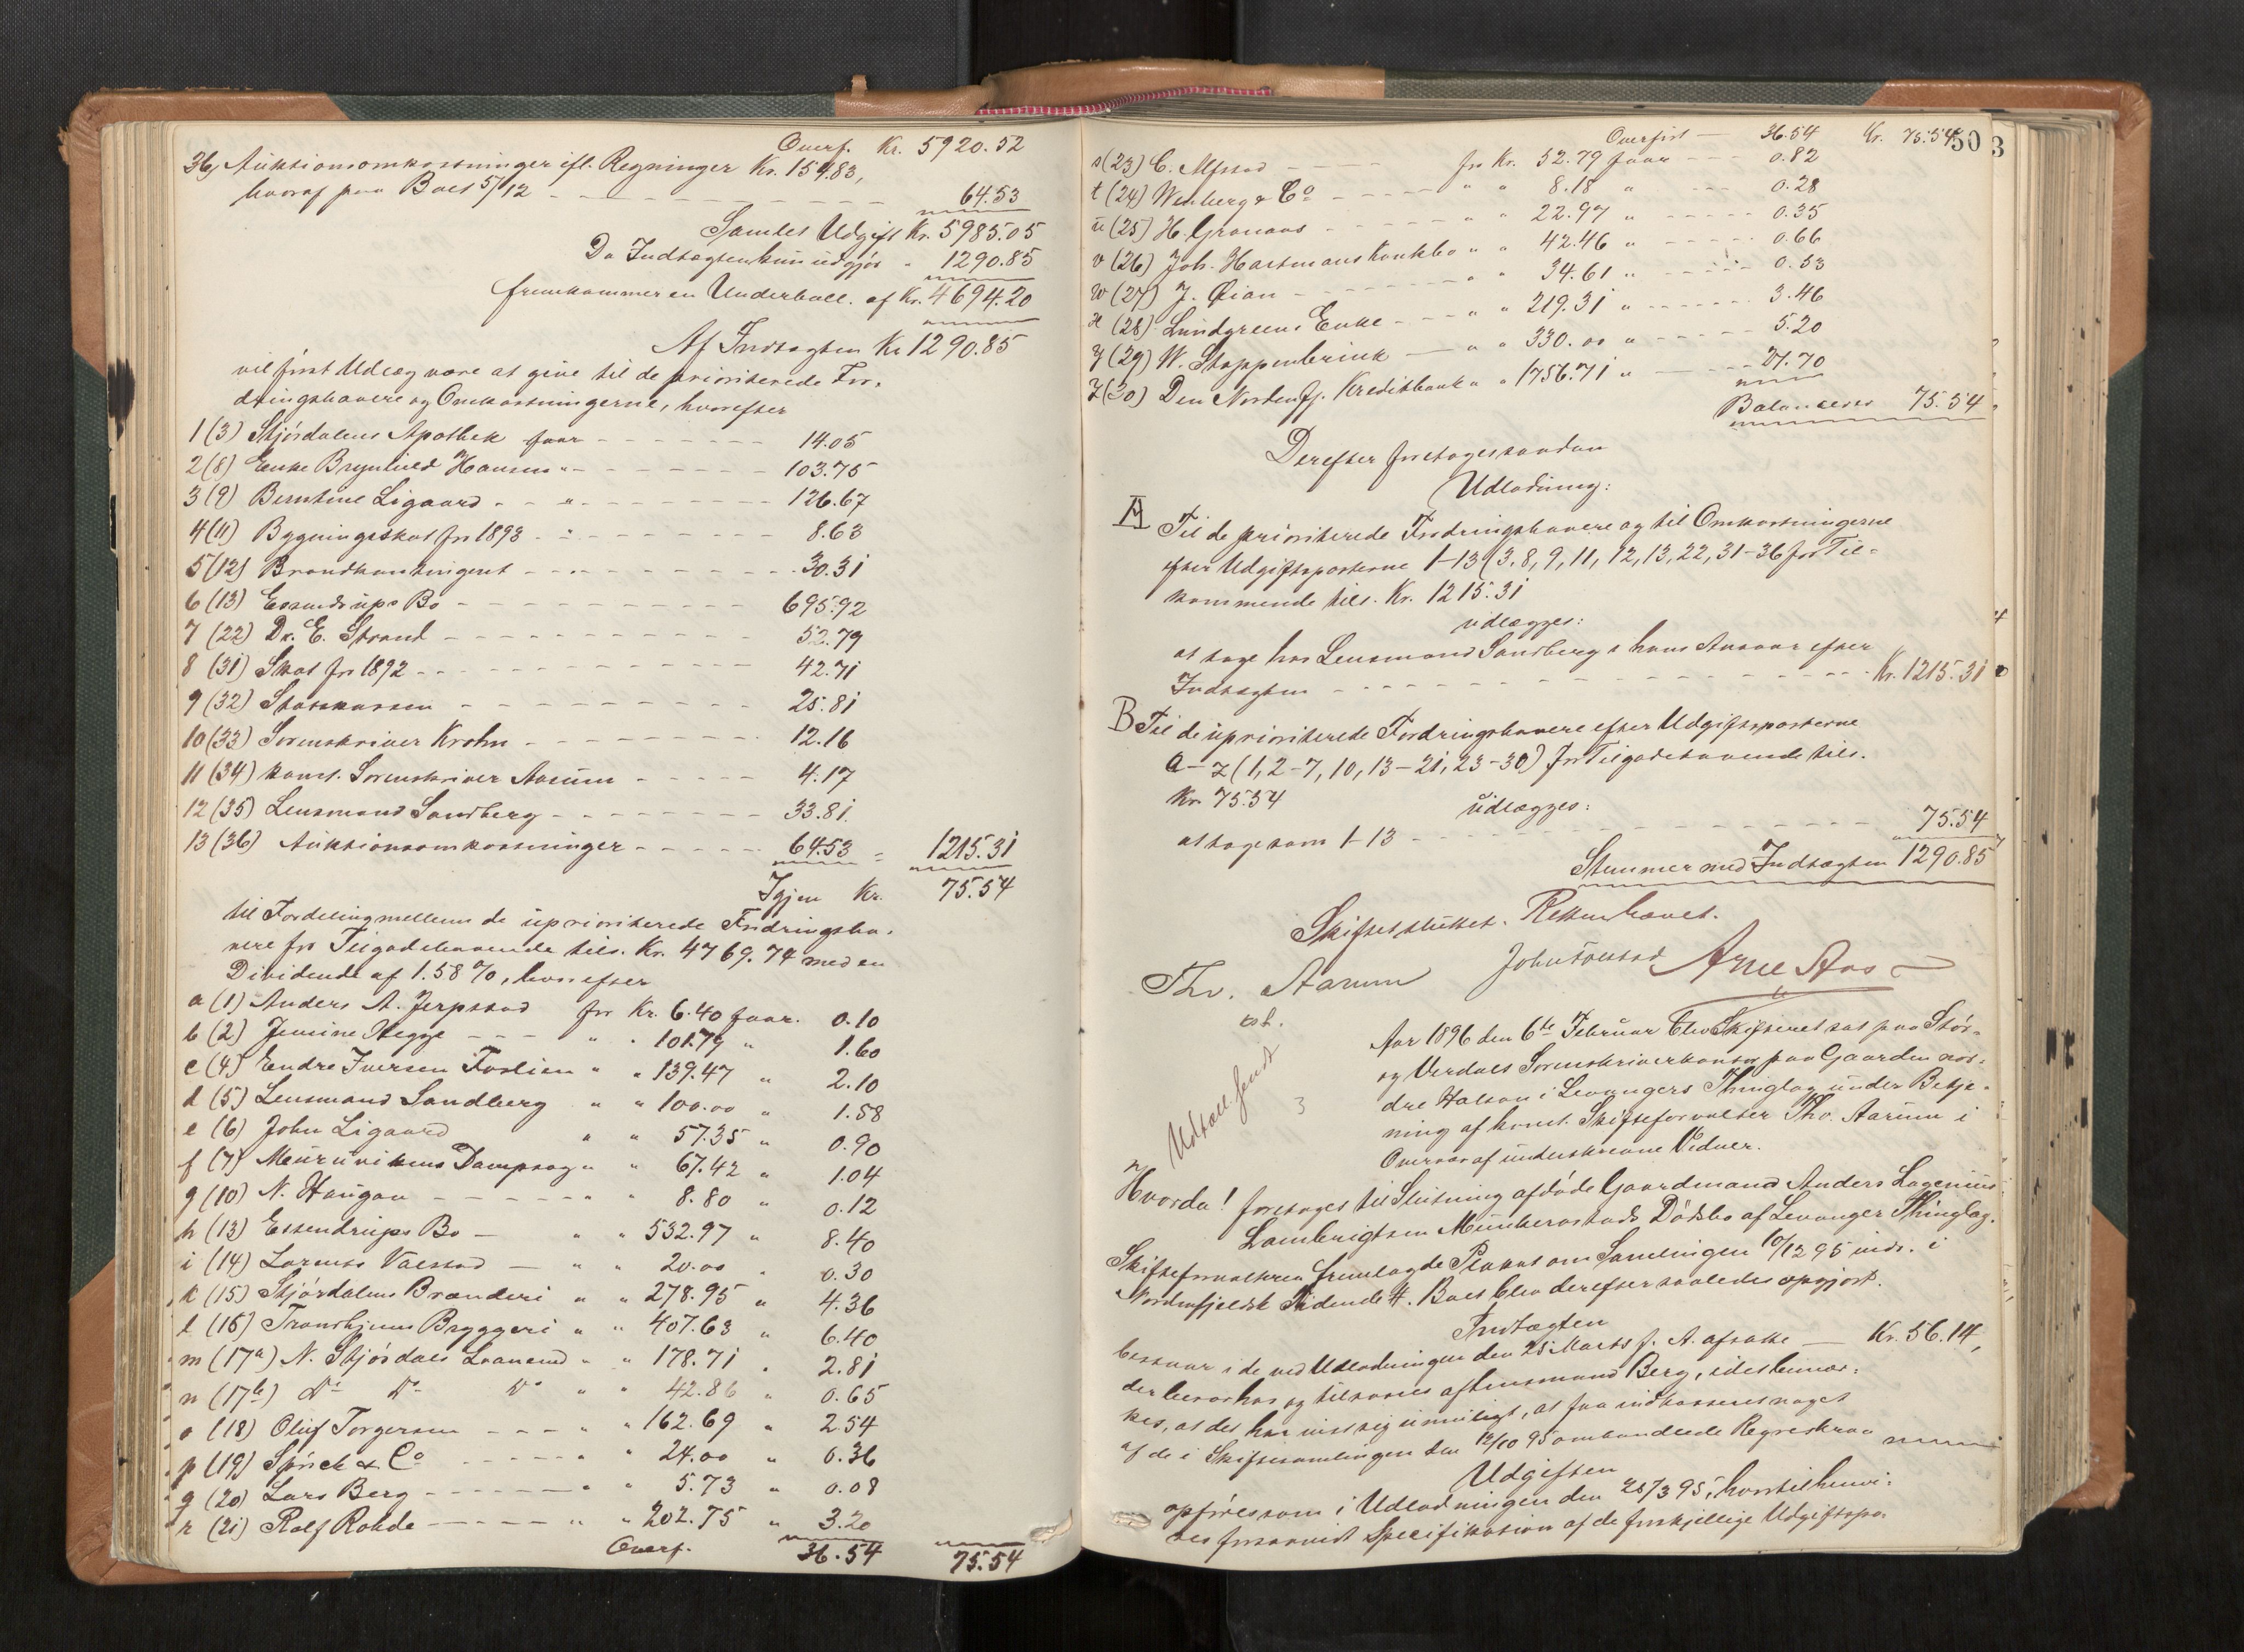 Overf. Kr. 5920.52
36, Auktionsomkostninger ifl. Regninger Kr. 159.83,
hvoraf paa Boet 5/12 - - - 64.53
Samlet Udgift Kr. 5985.05
Da Indtægten kun udgjør " 1290.85
fremkommer en Underball. af Kr. 4694.20
Af Indtægten Kr 1290.85
vil først Udlæg være at give til de prioriterede For-
dringshavere og Omkostningerne, hvorefter
1 (3) Stjørdalens Apothek faar - - - 14.05
2 (8) Enke Brynhild Hansen " - - - 103.75
3 (9) Berntine Ligaard - - " - - - 126.67
4 (11) Bygningsskat for 1893 - " - - - 8.63
5 (12) Brandkontingent - - - 30.31
6 (13) Essendrups Bo - - - 695.92
7 (22) Dr. E. Strand - - - 52.79
8 (31) Skat for 1892 - - - 42.71
9 (32) Statskassen - - - 25.81
10 (33) Sorenskriver Krohn - - - 12.16
11 (34) konst. Sorenskriver Aarum - - - 4.17
12 (35) Lensmand Sandberg - - - 33.81
13 (36) Auktionsomkostninger - - - 64.53 = 1215.31
Igjen Kr. 75.54
til Fordeling mellem de uprioriterede Fordringsha-
vere for Tilgodehavende tils. Kr. 4769.74 med en
Dividende af 1.58 %, hvorefter
a (1) Anders A. Jerpstad for Kr. 6.40 faar. 0.10
b (2) Jensine Hegge - - - " " 101.79 " 1.60
c (4) Endre Iversen Foslien " " 139.47 " 2.10
d (5) Lensmand Sandberg " " 100.00 " 1.58
e (6) John Ligaard " " 57.35 " 0.90
f (7) Meuruvikens Dampsag " " 67.42 " 1.04
g (10) N. Haugan - - - " " 8.80 " 0.12
h (13) Essendrups Bo - " " 532.97 " 8.40
i (14) Lorents Valstad - " " 20.00 " 0.30
k (15) Stjørdalens Brænderi " " 278.95 " 4.36
l (16) Trondhjems Bryggeri " " 407.63 " 6.40
m (17a) N. Stjørdals Laaneind " " 178.71 " 2.81
n (17b) Do Do Do " " 42.86 " 0.65
o (18) Oluf Torgersen - - - " " 162.69 " 2.54
p (19) Sprick & Co - - - " 24.00 " 0.36
q (20) Lars Berg - - - " " 5.73 " 0.08
r (21) Rolf Rohde - - - " " 202.75 " 3.20
Overf. 36.54 75.54
503
Overført - 36.54 Kr. 75.54
s (23) C. Alstad - - - for Kr. 52.79 faar - - - 0.82
t (24) Wenberg & Co - - - " " 8.18 " - - - 0.28
u (25) H. Granaas - - - " " 22.97 " - - - 0.35
v (26) Joh. Hartmans Konkbo " " 42.46 " - - - 0.66
w (27) J. Øian - - - " " 34.61 " - - - 0.53
x (28) Lundgreens Enke - - - " " 219.31 " - - - 3.46
y (29) W. Stoppenbrink - " " 330.00 " - - - 5.20
z (30) Den Nordenfj. Kreditbank " " 1756.71 " - - - 27.70
Balancerer 75.54
Derefter foretoges saadan
Udlodning:
A Til de prioriterede Fordringshavere og til Omkostningerne
efter Udgiftsposterne 1-13 (3, 8, 9, 11, 12, 13, 22, 31-36 for Til-
kommende tils. Kr. 1215.31
udlægges:
at tage hos Lensmand Sandberg s hans Ansvar efter
Indtægten - - - Kr. 1215.31
B Til de uprioriterede Fordringshavere efter Udgiftsposterne
a-z (1, 2-7, 10, 13-21, 23-30) for Tilgodehavende tils.
Kr. 75.54
udlægges:
at tage som 1-13 - - - 75.54
Stemmer med Indtægten 1290.85
Skiftet sluttet. Retten hævet.
Thv. Aarum John Arne Aas
cst.
Udskr. sendt
3
Aar 1896 den 6te Februar blev Skifteret sat paa Stør-
og Verdals Sorenskriverkontor paa Gaarden nor-
dre Halsan i Levangers Thinglag under Betje-
ning af konst. Skifteforvalter Thv. Aarum i
Overvær af underskrevne Vidner.
Hvorda! foretoges til Slutning afdøde Gaardmand Anders Lagenius
Lambrigtsen Munkerostads Dødsbo af Levanger Thinglag.
Skifteforvalteren fremlagde Plakat om Samlingen 10/12 95 indr. i
Nordenfjeldsk Tidende #. Boet blev derefter saaledes opgjort.
Indtægten
bestaar i de ved Udlodningen den 25 Marts f. A. afsatte - Kr. 56.14,
der beror hos og tilsvares af Lensmand Berg, idet bemær-
kes, at det har vist sig umuligt, at faa indkasseret noget
af de i Skiftesamlingen den 12/10 95 omhandlede Regreskrav
Udgiften
opføres som i Udlodningen den 25/3 95, hvortil henvi-
ses forsaavidt Specifikation af de forskjellige Udgiftspo-